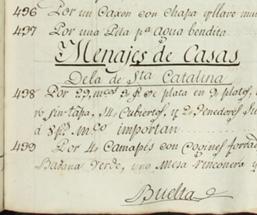 496 Por un Caxon con chapa y llave
497 Por una Pila pª agua bendita
Menajes de Casas
De la de Sta Catalina
498 Por 22, mcos 3 de plata en 9 platos,
ro, sin tapa, 14 Cubiertos, y 2 Tenedores
á 8 ps mco importan
499 Por 4 Camapés con Coxines forrad
Badana Verde, una Mesa rinconera y
Buelta